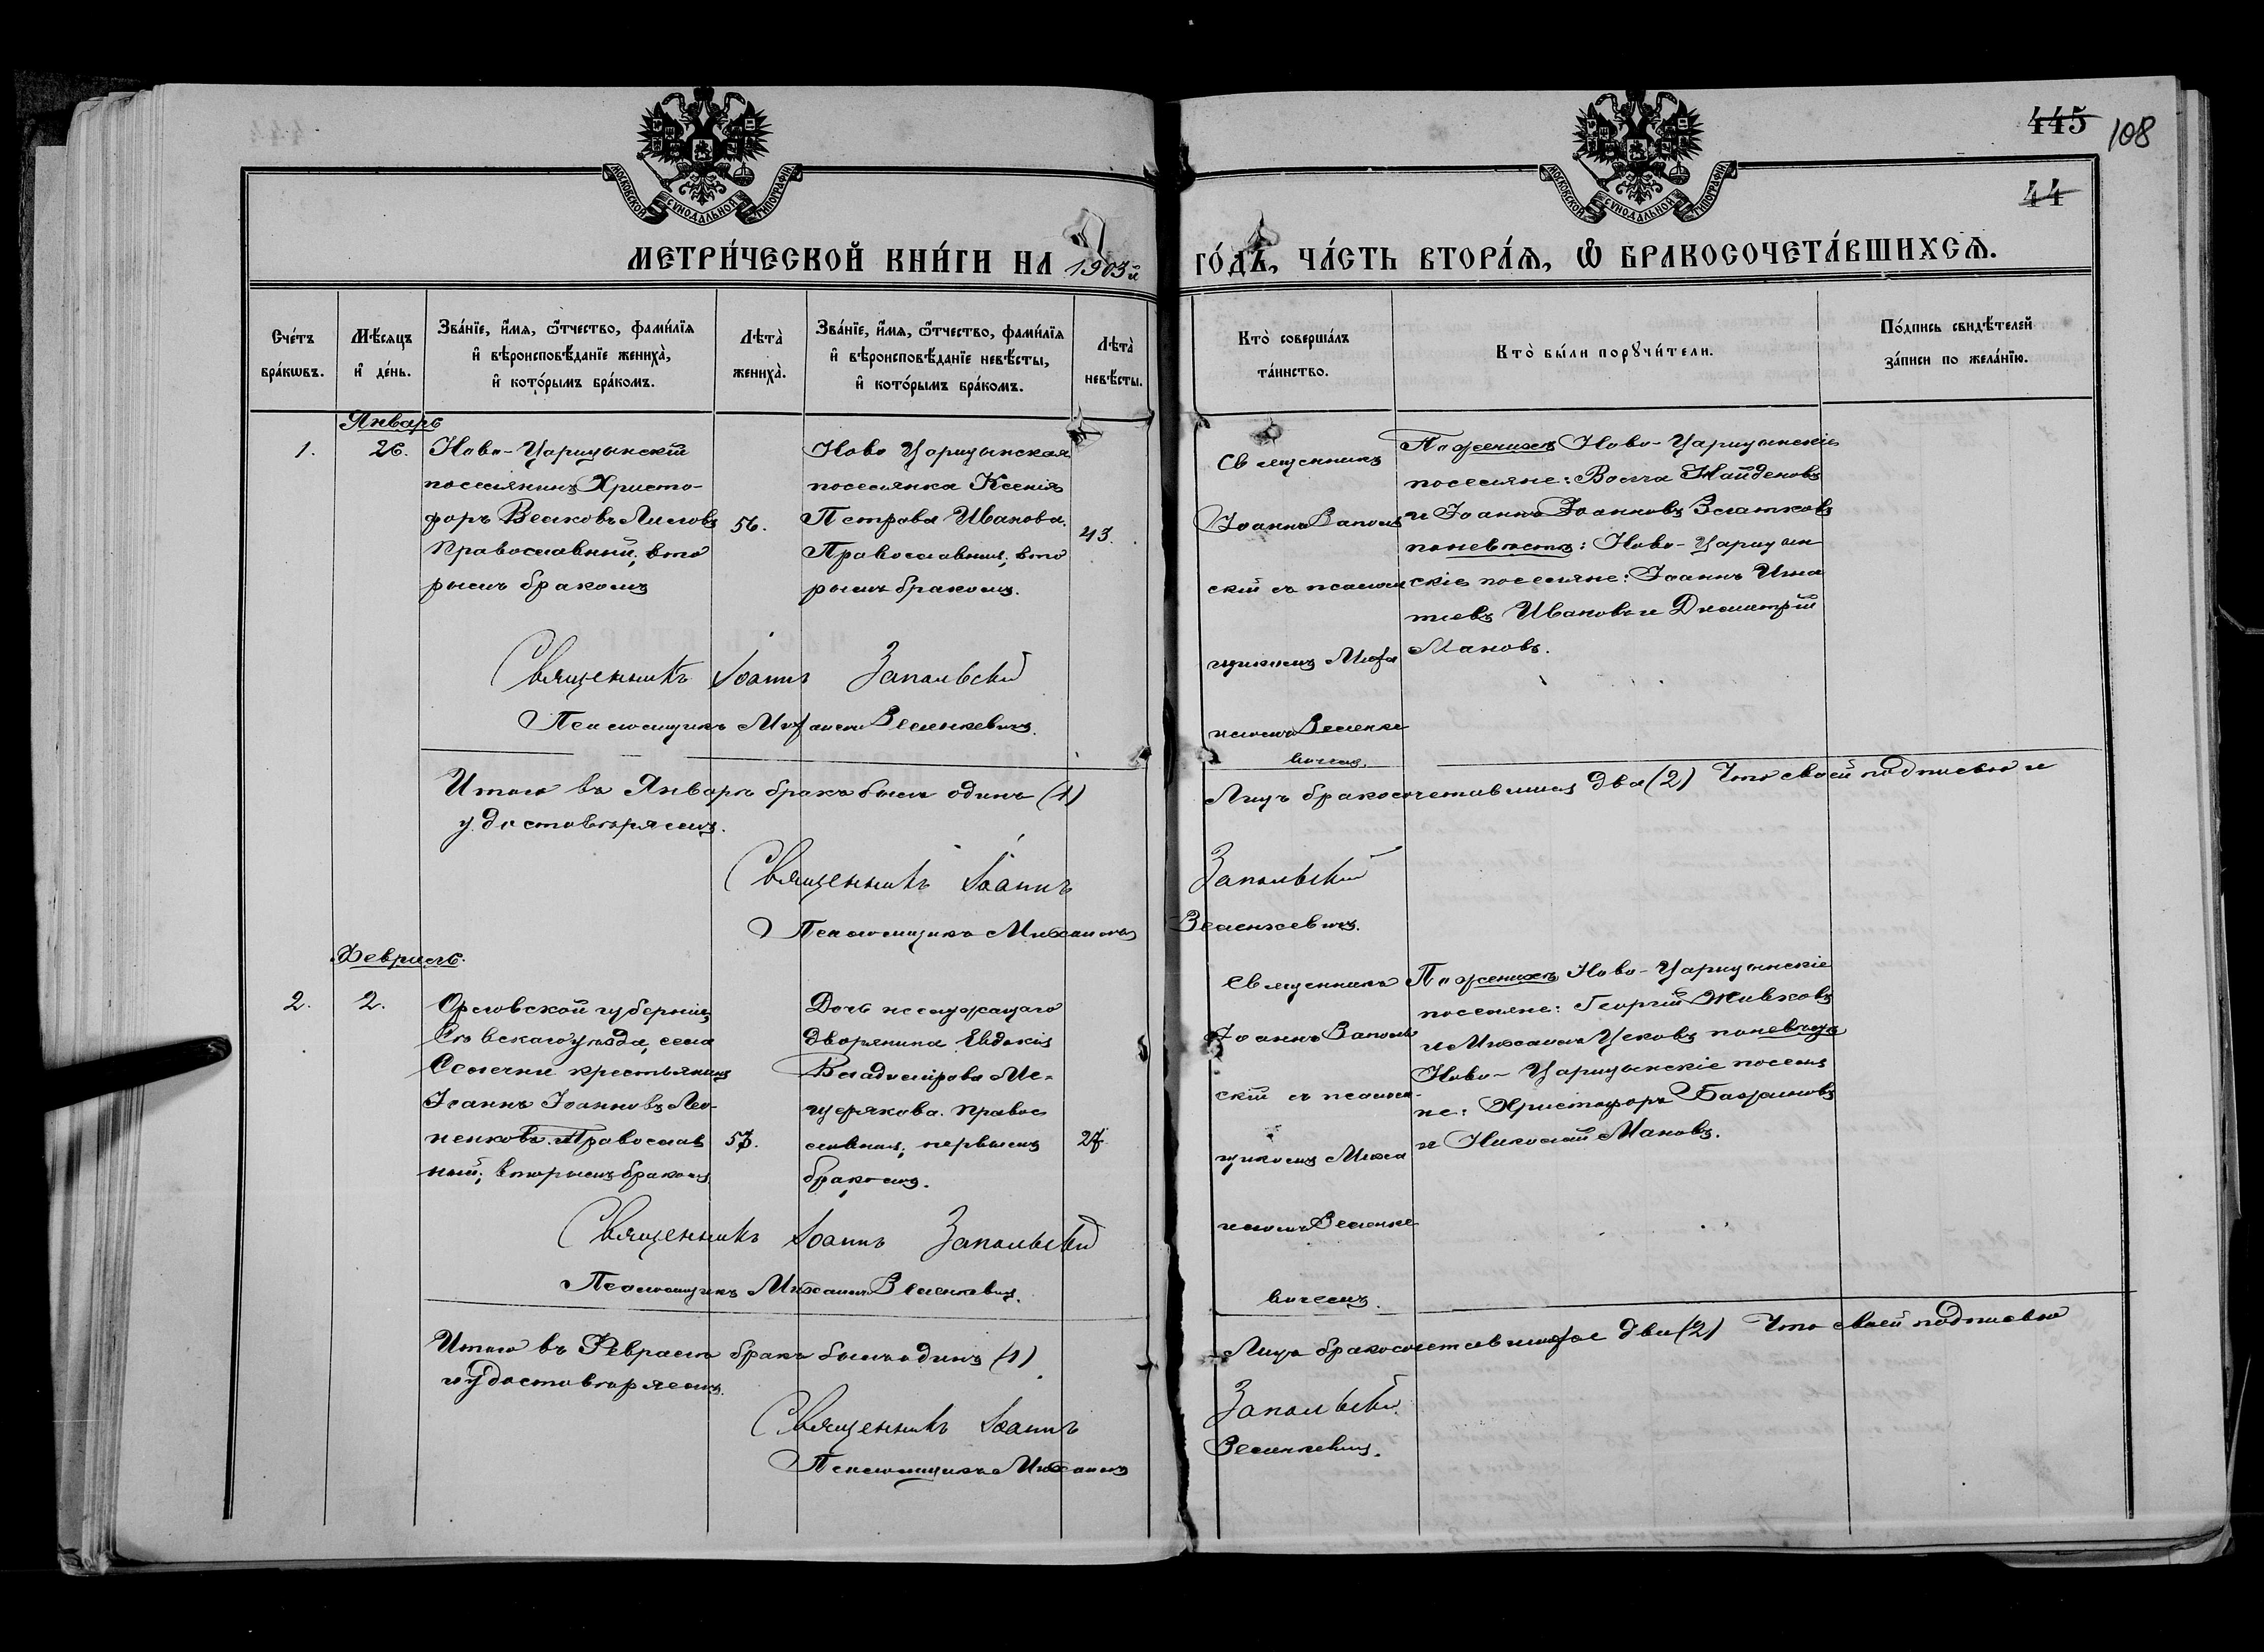 445
108
44
МОСКОВСКОЙ СУНОДАЛЬНОЙ ТИПОГРАФІИ
МОСКОВСКОЙ СУНОДАЛЬНОЙ ТИПОГРАФІИ
МЕТРИ́ЧЕСКОЙ КНИ́ГИ НА 1903й ГО́ДЪ, ЧА́СТЬ ВТОРА́Я, Ѡ БРАКОСОЧЕТА́ВШИХСЯ.
Сче́тъ бра́кѡвъ.
Мѣ́сяцъ и де́нь.
Зва́нїе, и́мя, ѻ҆́тчество, фами́лїя и вѣроисповѣ́данїе жениха̀, и кото́рымъ бра́комъ.
Лѣта̀ жениха̀.
Зва́нїе, и́мя, ѻ҆́тчество, фами́лїя и вѣроисповѣ́данїе невѣ́сты, и кото́рымъ бра́комъ.
Лѣта̀ невѣ́сты.
Кто̀ соверша́лъ та́инство.
Кто̀ бы́ли порꙋчи́тели.
По́дпись свидѣ́телей за́писи по жела́нїю.
Январь
1.
26.
Ново-Царицынскій
поселянинъ Христо-
форъ Велковъ
Православный; вто
рымъ бракомъ
56.
Ново Царицынская
поселянка Ксенія
Петрова Иванова.
Православная, вто
рымъ бракомъ.
43.
Священникъ
Іоаннъ Заполь
скій съ псалом
щикомъ Миха
иломъ Зеленке
вичемъ.
По женихѣ Ново-Царицынскіе
поселяне: Волча Найденовъ
и Іоаннъ Іоанновъ Златковъ
по невѣстѣ: Ново-Царицын
скіе поселяне: Іоаннъ Игна
тіевъ Ивановъ и Димитрій
Мановъ.
Священникъ Іоаннъ Запольскій
Псаломщикъ Михаилъ Зеленкевичъ.
Итого въ Январѣ бракъ былъ одинъ (1)
Лицъ бракосочетавшихся два (2) Что своей подписью и
удостовѣряемъ.
Священникъ Іоаннъ Запольскій
Псаломщикъ Михаилъ Зеленкевичъ.
Февраль.
2.
2.
Орловской губерніи,
Сѣвскаго уѣзда, села
крестьянинъ
Іоаннъ Іоанновъ Лео-
ненковъ. Православ
ный; вторымъ бракомъ
53.
Дочь неслужащаго
дворянина Евдокія
Владимірова Ме-
щерякова. Правос
лавная; первымъ
бракомъ.
27.
Священникъ
Іоаннъ Заполь
скій съ псалом-
щикомъ Миха
иломъ Зеленке
вичемъ.
По женихѣ Ново-Царицынскіе
поселяне: Георгій Живковъ
и Михаилъ Цековъ по невѣстѣ
Ново-Царицынскіе поселя
не: Христофоръ
и Николай Мановъ.
Священникъ Іоаннъ Запольскій
Псаломщикъ Михаилъ Зеленкевичъ.
Итого въ Февралѣ бракъ былъ одинъ (1)
Лицъ бракосочетавшихся два (2) Что своей подписью
и удостовѣряемъ.
Священникъ Іоаннъ Запольскій
Псаломщикъ Михаилъ Зеленкевичъ.